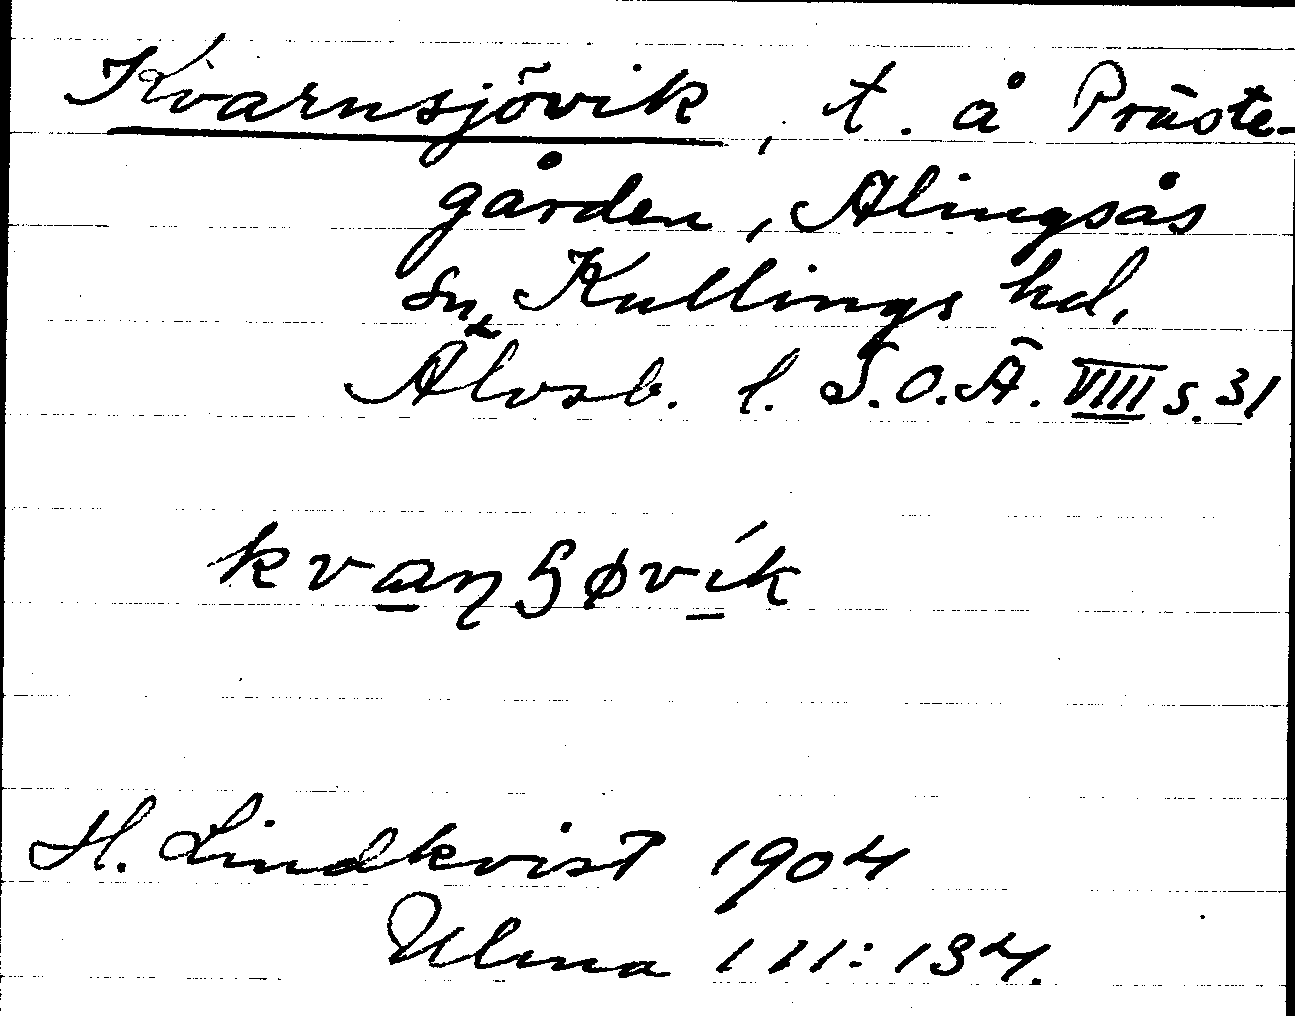 Kvarnsjövik, t. å Präste-
gården, Alingsås
sn, Kullings hd,
Älvsb. l. S.O.Ä. VIII s. 31
kvaɳɧøvík
H. Lindkvist 1904
Ulma 111:134.